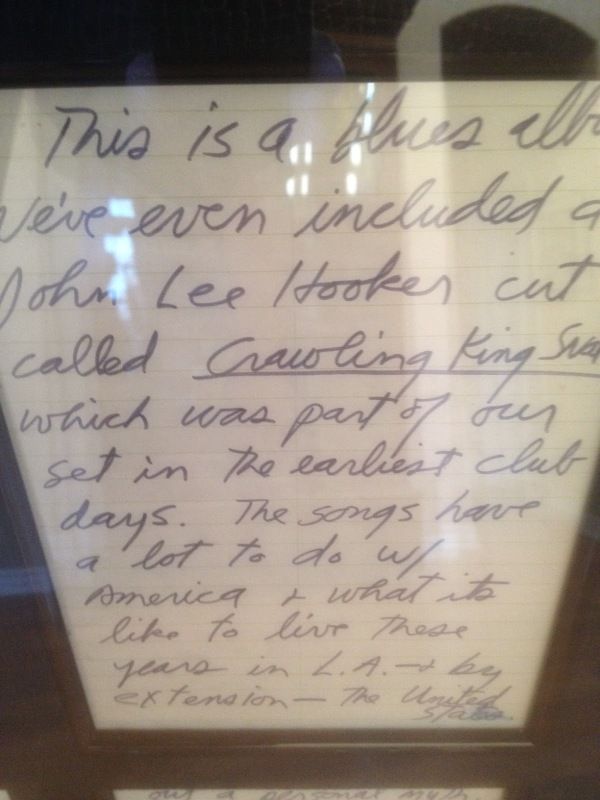 This is a blues alb
We've even included a
John Lee Hooker cut
called Crawling King Sna
which was part of our
set in the earliest club
days. The songs have
a lot to do w/
America & what its
like to live these
years in L.A. — & by
extension — The United
States.
out a personal myth